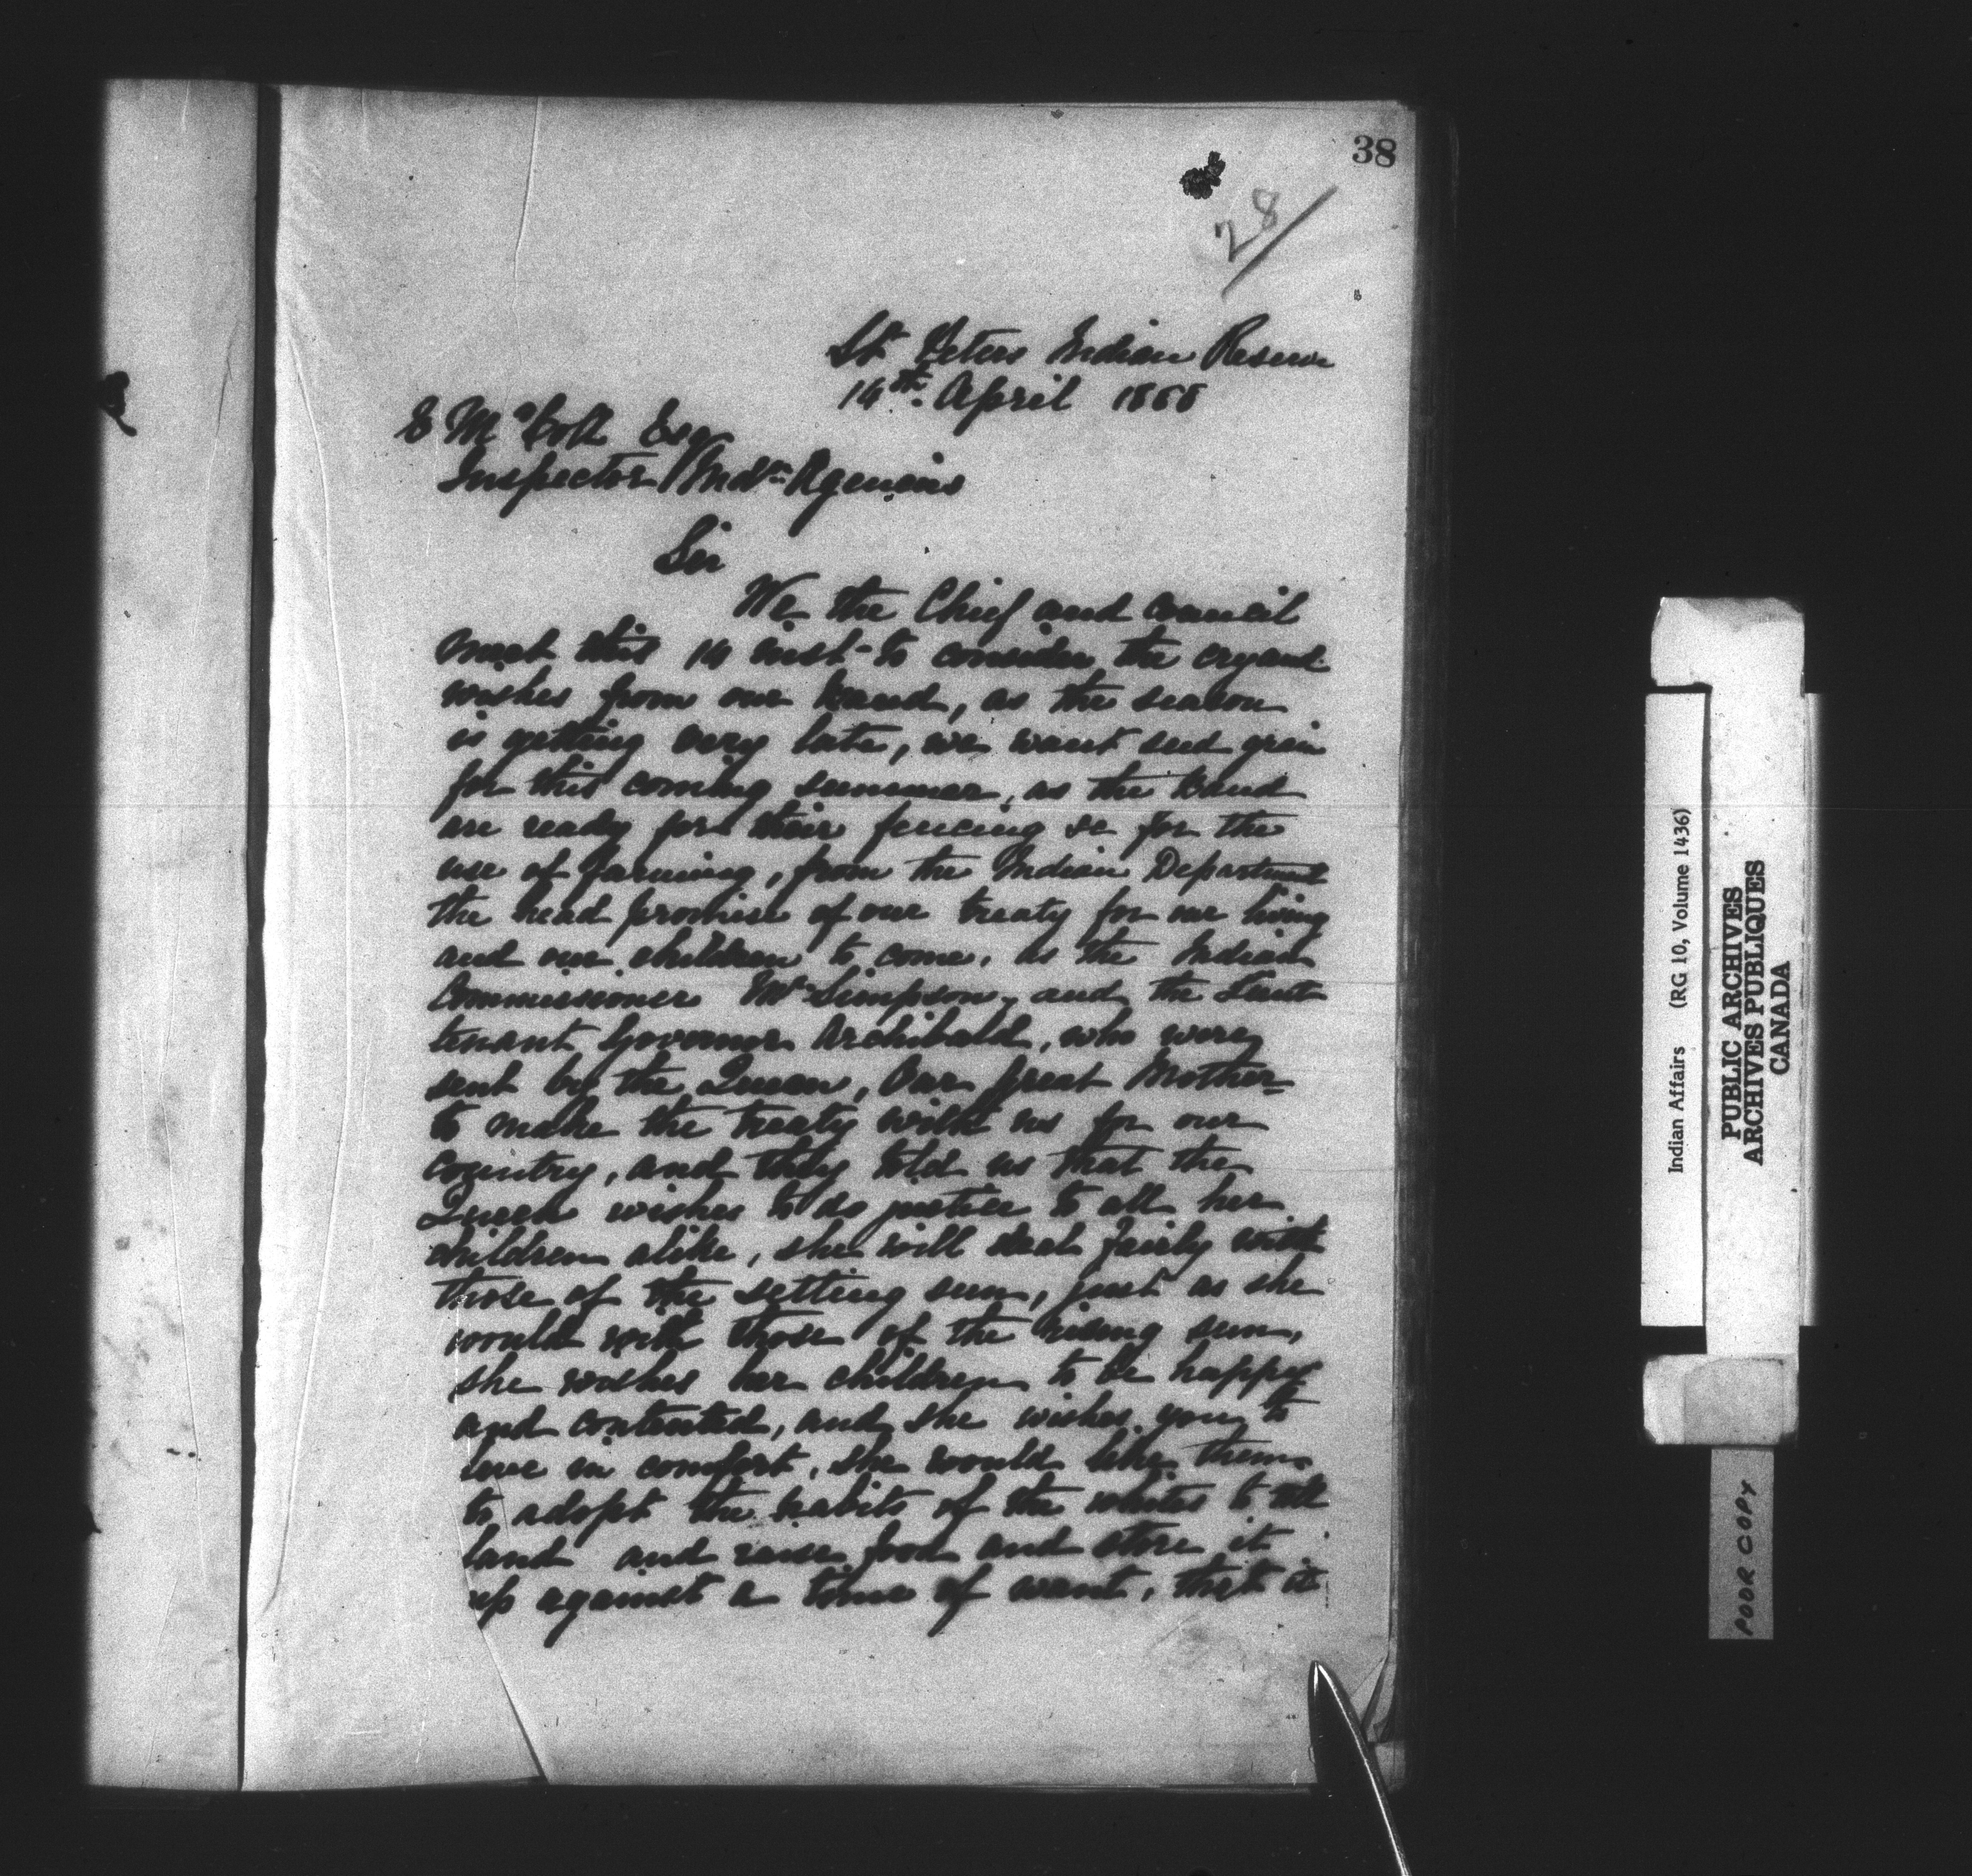 38
28
St Peters Indian Reserve
14th April 1888
E McColl Esq
Inspector Indn Agencies
Sir
We the Chief and council
meet this 14 inst to consider the cry and
wishes from our band, as the season
is getting very late, we want seed grain
for this coming summer, as the band
are ready for their fencing &c for the
use of farming, from the Indian Department
the head promise of our treaty for our living
and our children to come. as the Indian
Commissioner Mr Simpson, and the Lieut
tenant Governor Archibald, who were
sent by the Queen, Our great Mother
to make the treaty with us for our
country, and they told us that the
Queen wishes to do justice to all her
children alike, she will deal fairly with
those of the setting sun, just as she
would with those of the rising sun,
she wishes her children to be happy
and contented, and she wishes you to
live in comfort, she would like them
to adopt the habits of the whites to till
land and raise food and store it
up against a time of want, that it
Indian Affairs (RG 10, Volume 1436)
PUBLIC ARCHIVES
ARCHIVES PUBLIQUES
CANADA
POOR COPY